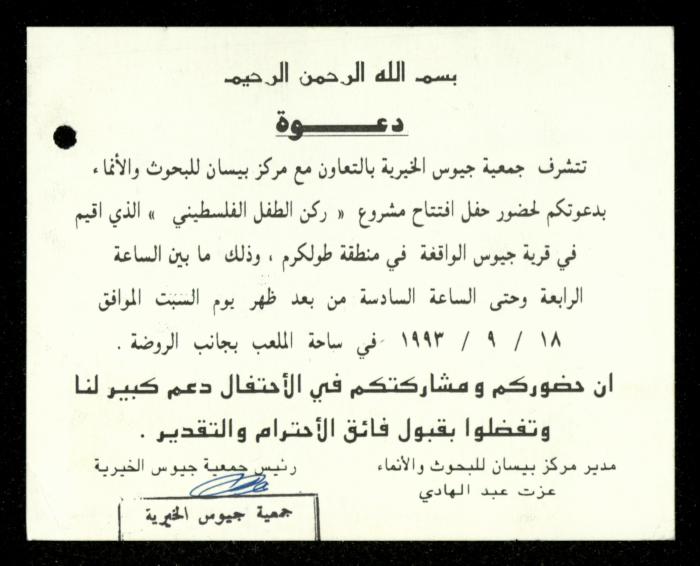 بسم الله الرحمن الرحيم
دعـــــوة
تتشرف جمعية جيوس الخيرية بالتعاون مع مركز بيسان للبحوث والأنماء
بدعوتكم لحضور حفل افتتاح مشروع « ركن الطفل الفلسطيني » الذي اقيم
في قرية جيوس الواقغة في منطقة طولكرم ، وذلك ما بين الساعة
الرابعة وحتى الساعة السادسة من بعد ظهر يوم السبت الموافق
١٨ / ٩ / ١٩٩٣ في ساحة الملعب بجانب الروضة .
ان حضوركم ومشاركتكم في الأحتفال دعم كبير لنا
وتفضلوا بقبول فائق الأحترام والتقدير .
مدير مركز بيسان للبحوث والأنماء رئيس جمعية جيوس الخيرية
عزت عبد الهادي
جمعية جيوس الخيرية